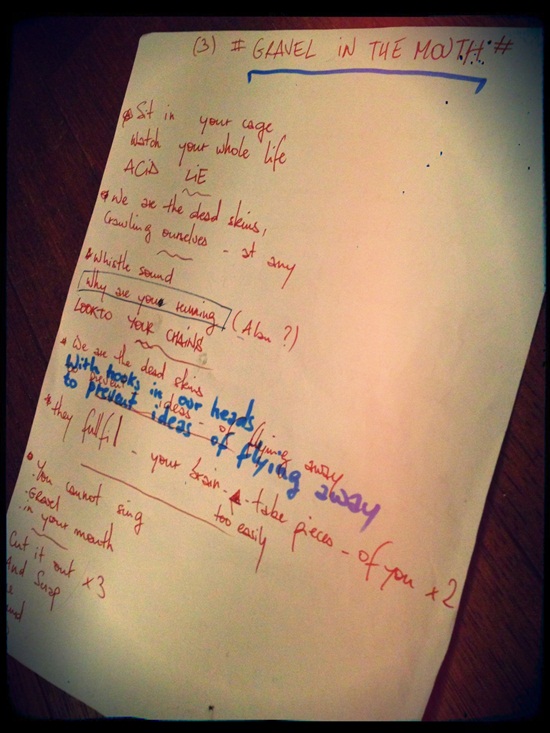 (3) # GRAVEL IN THE MOUTH #
Sit in your cage
Watch your whole life
ACID LIE
We are the dead skins,
Crawling ourselves - at any
Whistle sound
Why are you running (Alan ?)
LOOK TO YOUR CHAINS
We are the dead skins
With hooks in our heads
to prevent ideas - of flying away
to prevent ideas of flying away
they fulfil - your brain - take pieces - of you x2
too easily
You cannot sing
Gravel
in your mouth
Cut it out x3
And Snap